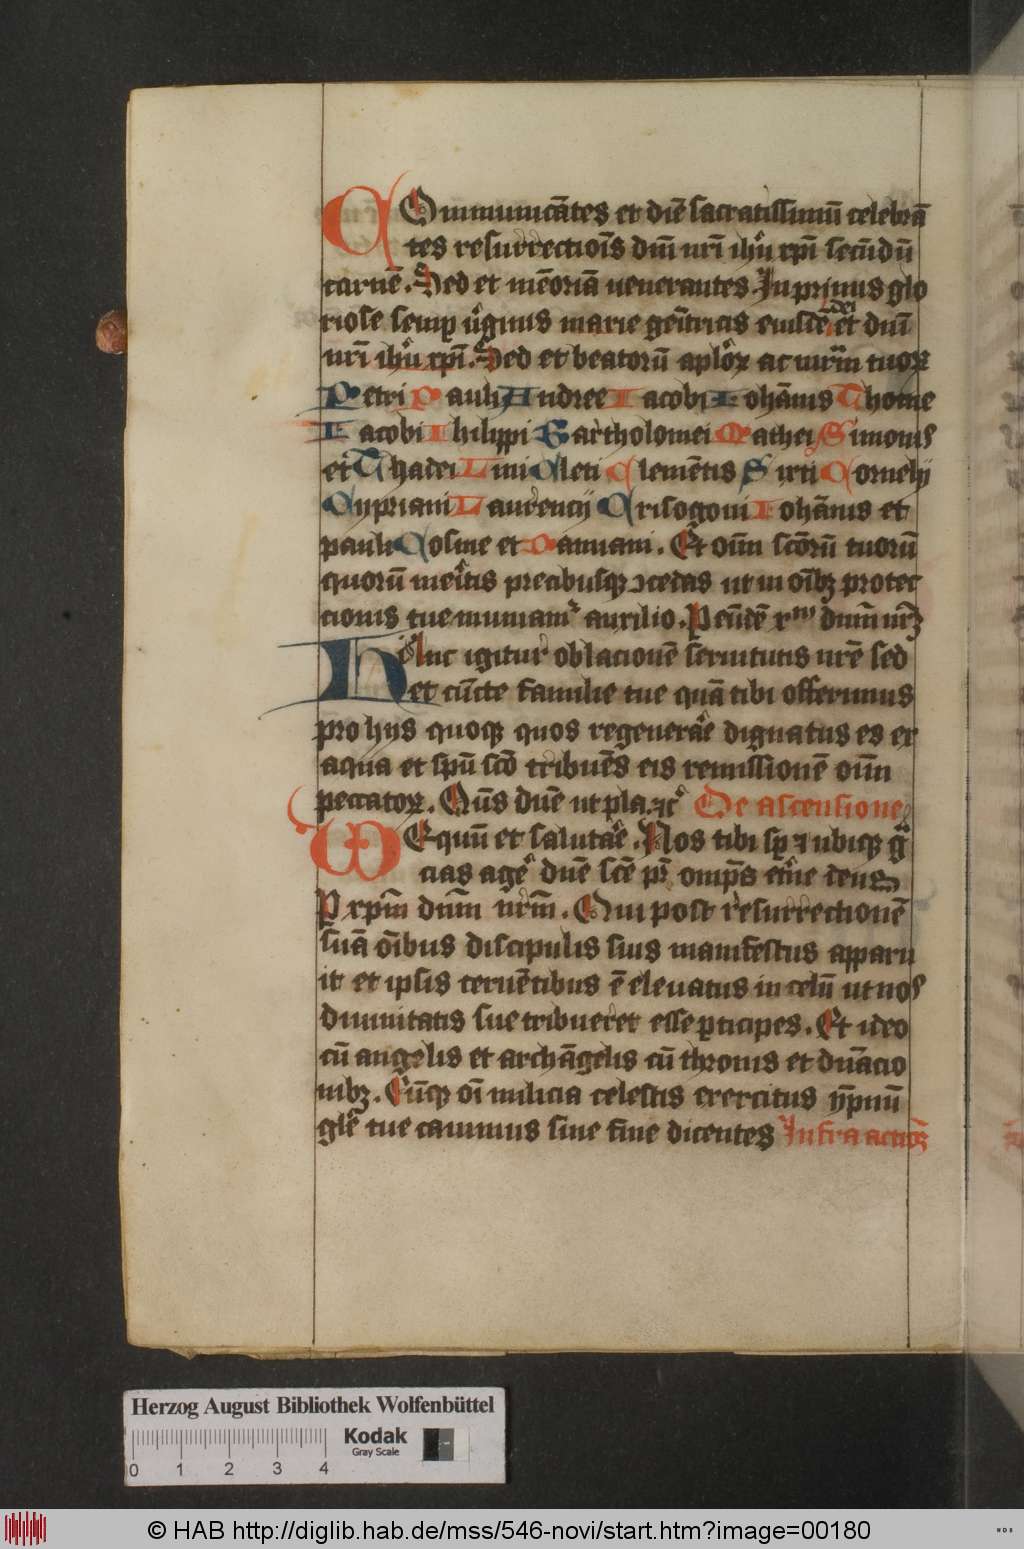 COmmunicātes et diē sacratissimū celebrā
tes resurrectiōis dn̄i nr̄i ihū xp̄i secūdū
carnē. Sed et mēoriā venerantes. Inprimis glo
riose semꝑ v̓ginis marie geītricis eiusdē dei et dn̄i
nr̄i ihū xp̄i. Sed et beatorū aplo̓ꝝ ac mr̄m tuoꝝ
Petri Pauli Andree Iacobi Iohānis Thome
Iacobi Philippi Bartholomei Mathei Simonis
et Thadei Lini Cleti Clemētis Sixti Cornelij
Cypriani Laurencij Crisogoni Iohānis et
pauli Cosme et Damiani. Et oīm sc̄orū tuorū
quorū meītis precibusqꝫ ↄcedas ut in oībꝫ protec
cionis tue muniamr̓ auxilio. P eūdē xᵐ dnm̄ nr̄ꝫ
HAnc igitur oblacionē seruitutis nr̄e sed
et cūcte familie tue quā tibi offerimus
pro hijs quoqꝫ quos regenerāe dignatus es ex
aqua et spū sc̄o tribuēs eis remissionē oīm
peccatoꝝ. Qūs dn̄e ut pla. ꝛc̓ De ascensione
VEquū et salutāe. Nos tibi sꝑ ꝛ ubiqꝫ g̃
cias age̓ dn̄e sc̄e pr̄ omp̄s et̓ne deus
P xpm̄ dnm̄ nr̄m. Qui post resurrectionē
suā oībus discipulis suis manifestus apparu
it et ipsis cernētibus ē eleuatus in celū ut nos
diuinitatis sue tribueret esse ꝑticipes. Et ideo
cū angelis et archāgelis cū thronis et dn̄acio
nibꝫ. Cūqꝫ oī milicia celestis exercitus ympnū
gl̄e tue canimus sine fine dicentes Infra actiōꝫ
Herzog August Bibliothek Wolfenbüttel
Kodak
Gray Scale
0 1 2 3 4
© HAB http://diglib.hab.de/mss/546-novi/start.htm?image=00180